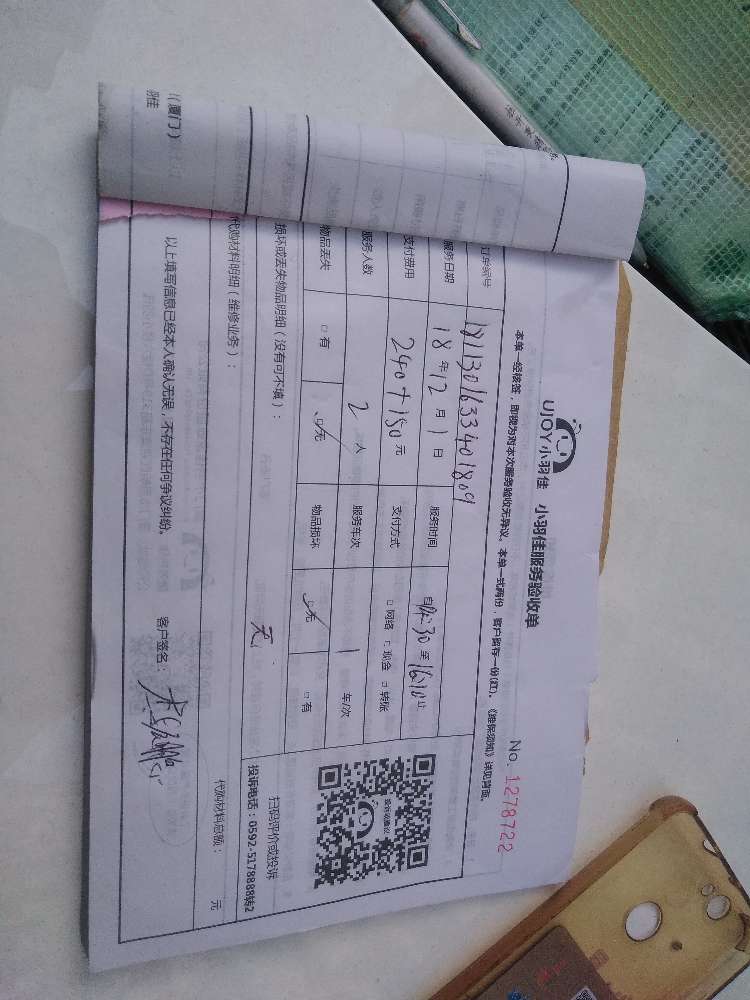 UJOY小羽佳 小羽佳服务验收单
No. 1278722
本单一经核签，即视为对本次服务验收无异议。本单一式两份，客户留存一份(红)。《维保须知》详见背面。
订单编号 1811301633401809
服务日期 18年12月1日 服务时间 自14:30至16:10止
支付费用 240+150元 支付方式 □网络 □现金 □转账
服务人数 2人 服务车次 1 车/次
物品丢失 □有 □无 物品损坏 □无 □有
损坏或丢失物品明细（没有可不填）： 无
扫码评价或投诉
投诉电话：0592-5178888转2
代购材料明细（维修业务）： 代购材料总额： 元
以上填写信息已经本人确认无误，不存在任何争议纠纷。 客户签名：
（厦门）
羽佳